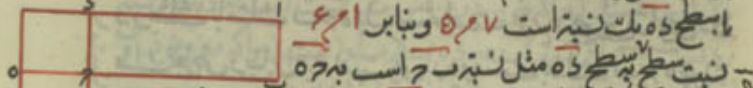 با سطح ده یک نسبتر است ۷ م ۵ و بنابر ۱ م ۶
نسبت سطح به سطح ده مثل نسبت ب ح است به ح ه